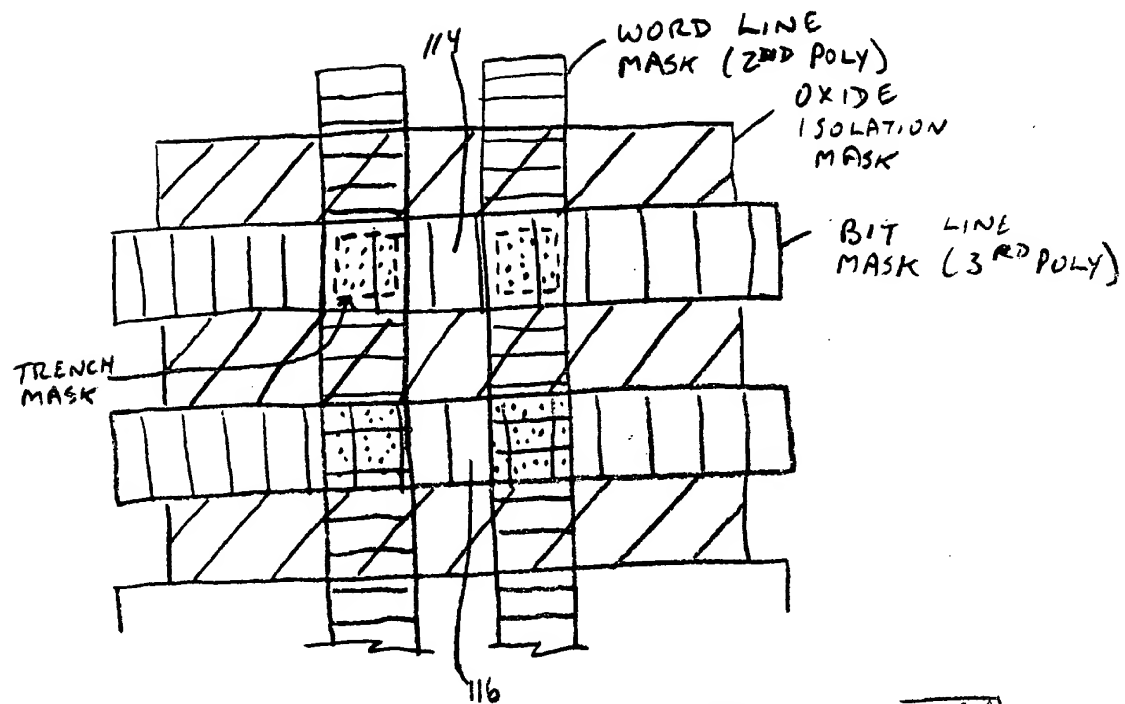 114
WORD LINE
MASK (2ND POLY)
OXIDE
ISOLATION
MASK
BIT LINE
MASK (3RD POLY)
TRENCH
MASK
116